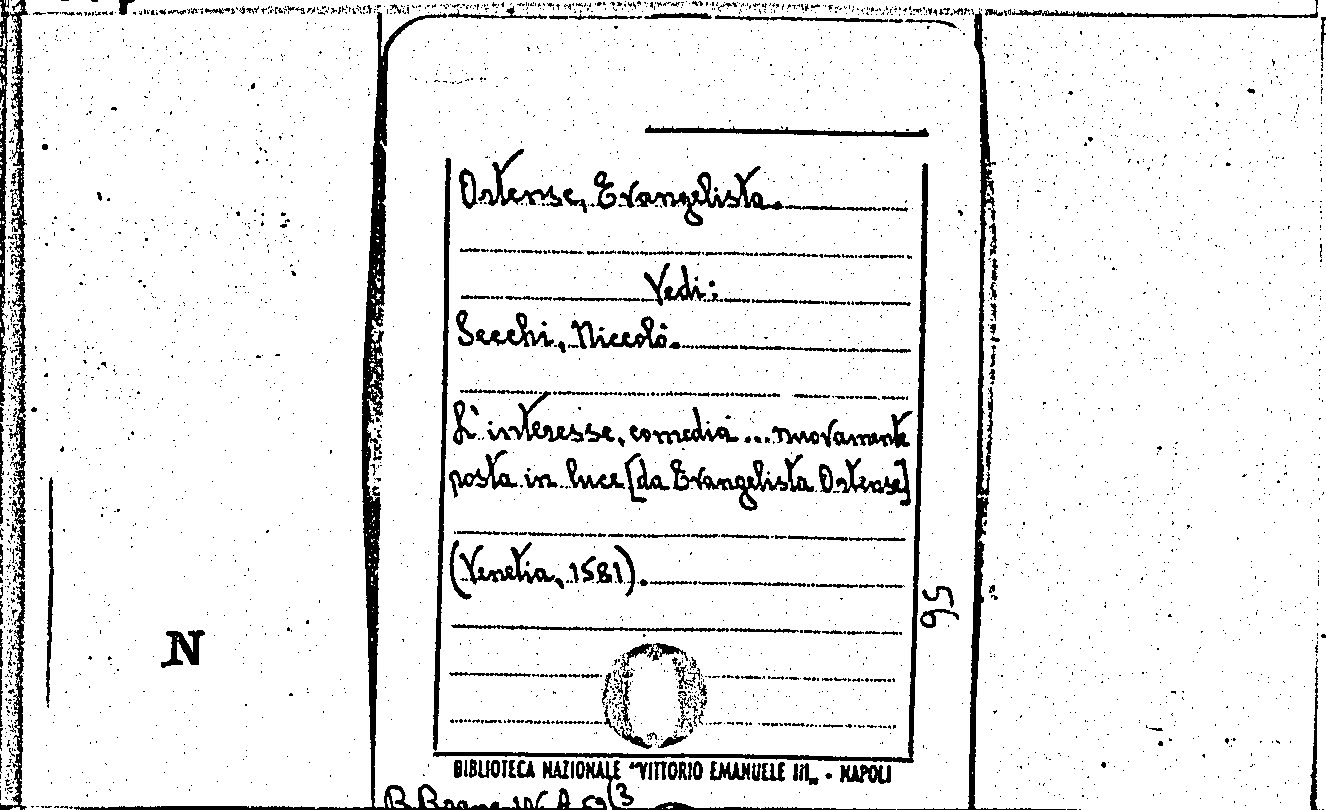 Ortense, Evangelista.
Vedi:
Secchi, Niccolò.
L'interesse, comedia ... nuovamente
posta in luce [da Evangelista Ortense]
(Venetia, 1581).
56
N
BIBLIOTECA NAZIONALE "VITTORIO EMANUELE III„ - NAPOLI